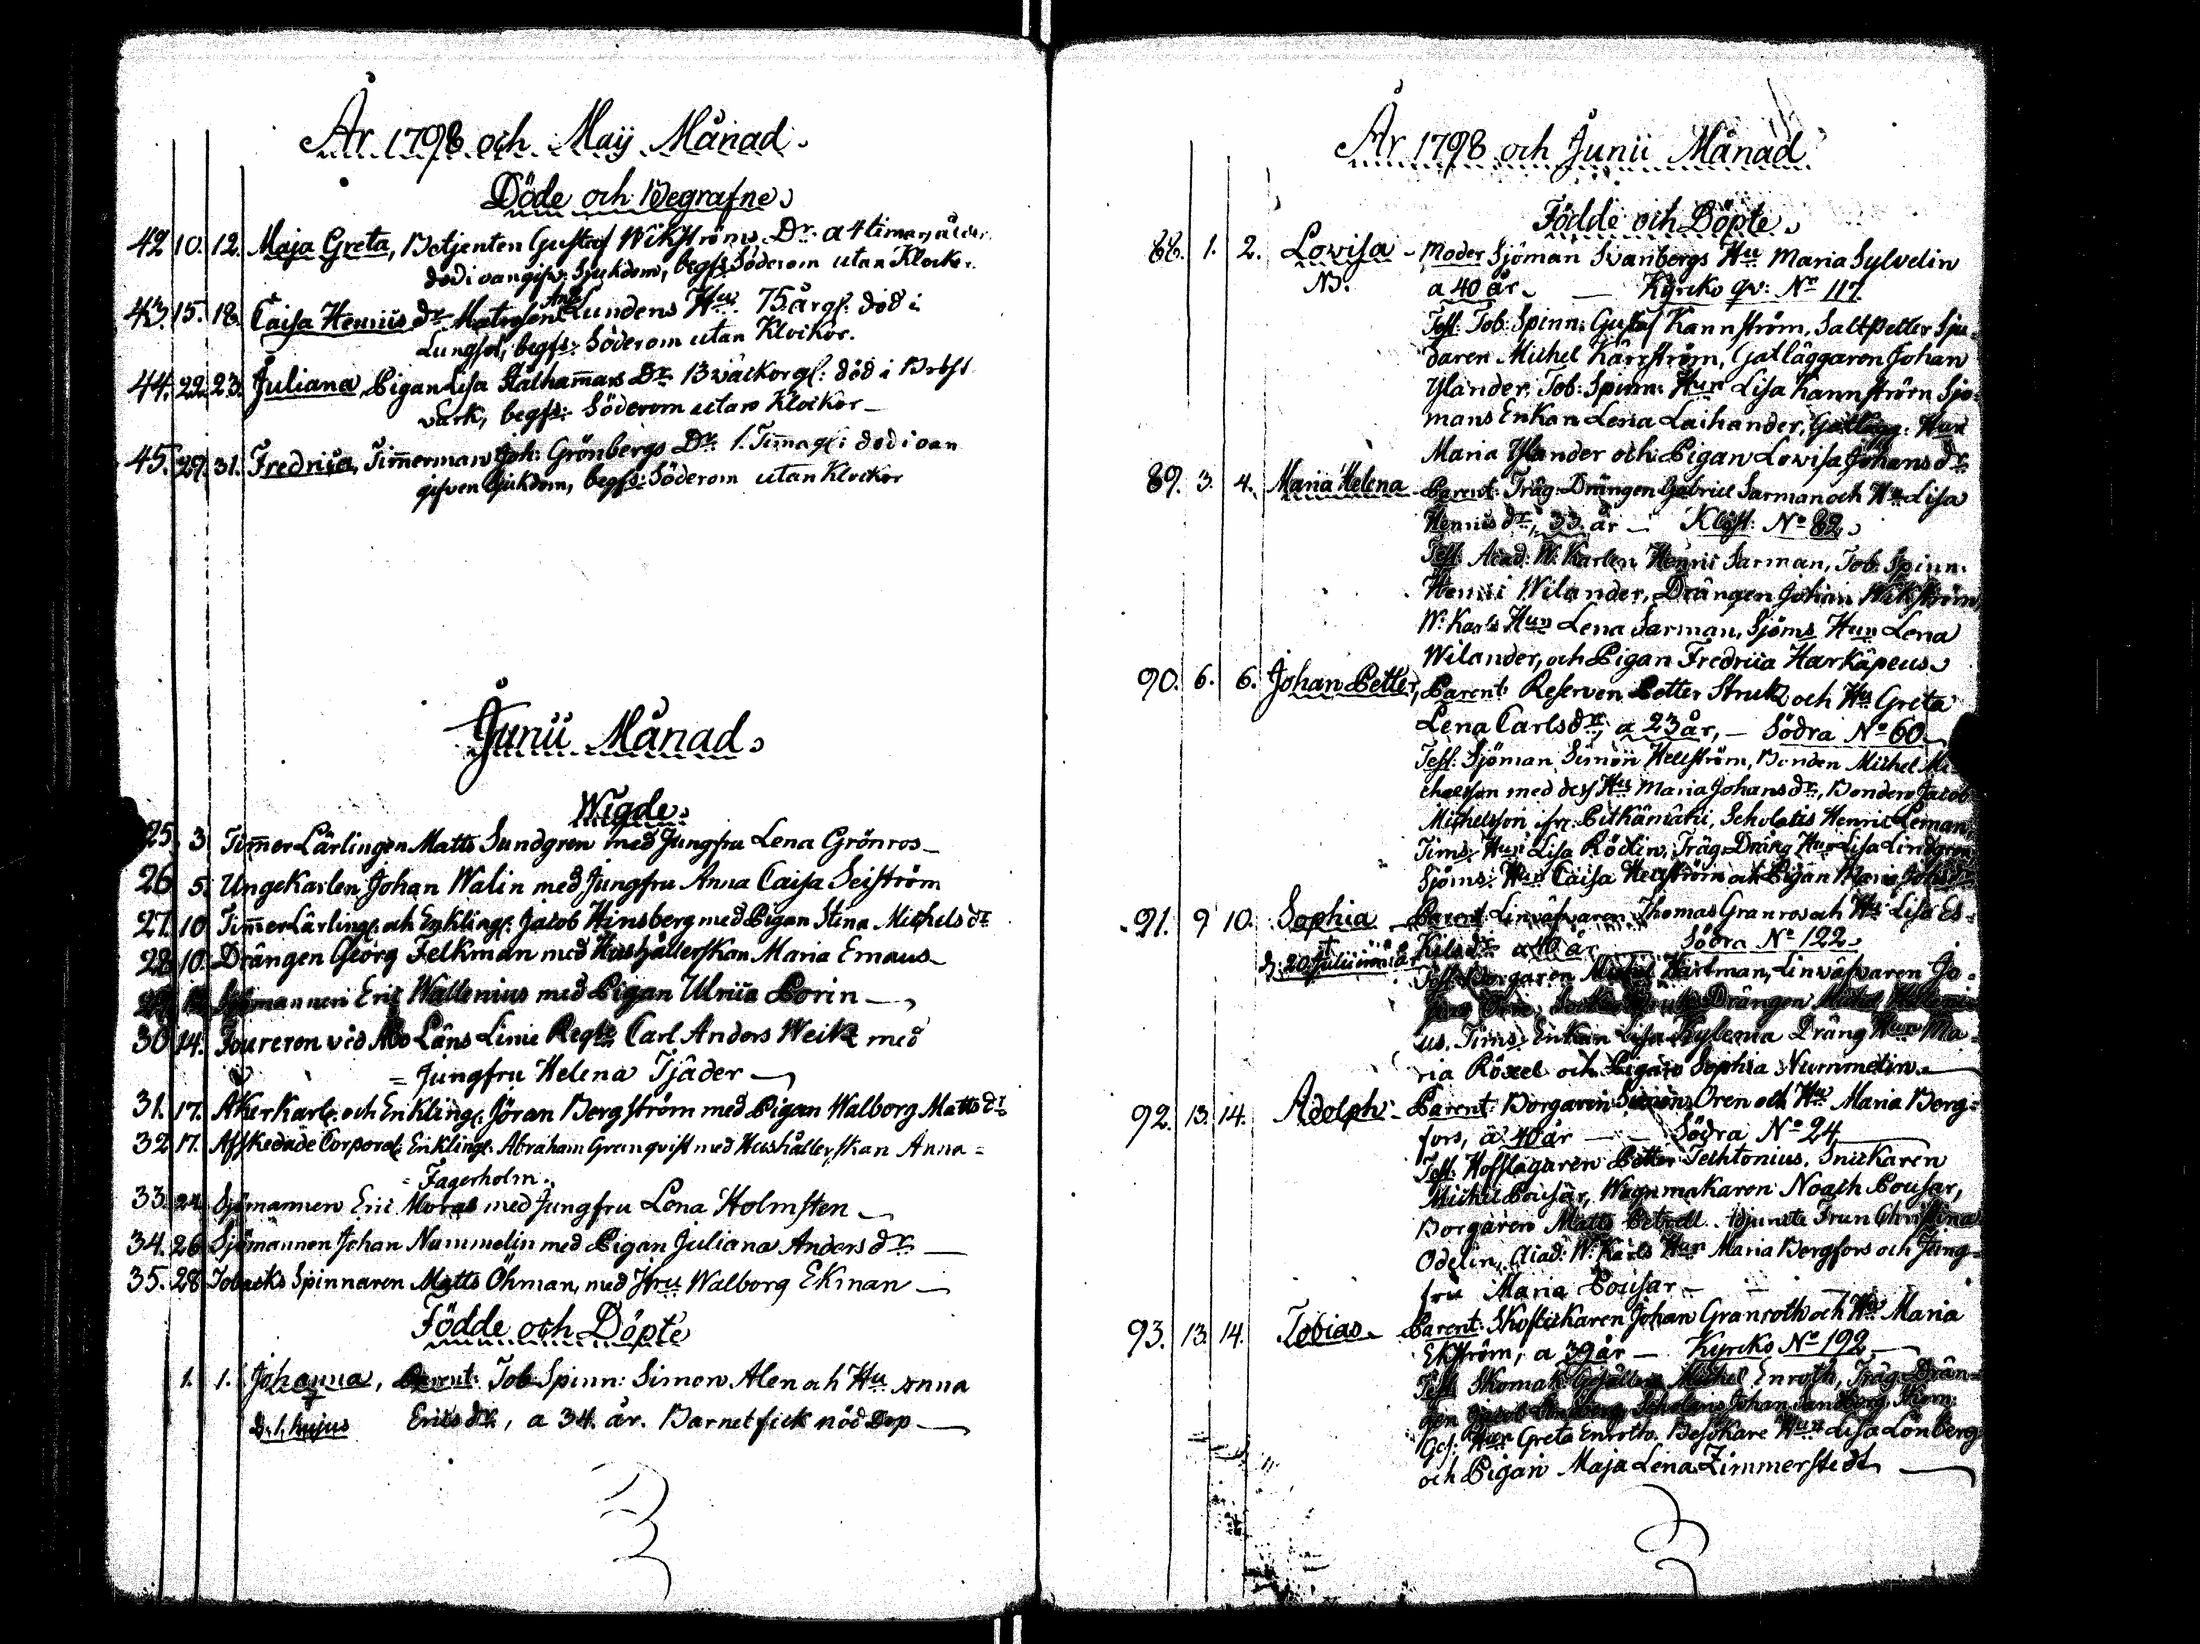 År 1798 och Maij Månad.
Döde och Begrafne.
42 10. 12. Maja Greta, Betjenten Gustaf Wikströms Dr. a 4 timars ålder
död i oangifv: Sjukdom, begfs Söderom utan Klockor.
43. 15. 18. Caisa Henrics dr. Matrosens And: Lundens Hu. 75 år gl. död i
Lungsot, begfs: Söderom utan Klockor.
44. 22. 23. Juliana Pigan Lisa Stålhammars Dr. 13 vickor gl: död i Bröst
värk, begfs: Söderom utan Klockor
45. 29. 31. Fredrica, Timmerman Joh: Grönbergs Dr. 1. Tima gl: död i oan
gifven Sjukdom, begfs: Söderom utan Klockor
Junii Månad.
Wigde.
25 3 Timmer Lärlingen Matts Sundgren med Jungfru Lena Grönros
26 5. Ungekarlen Johan Walin med Jungfru Anna Caisa Seiström
27. 10 Timmer Lärling: och Enkling: Jacob Hinsberg med Pigan Stina Michels dr
28 10. Drängen Georg Felkman med Hushållerskan Maria Emaus
Sjömannen Eric Wallenius med Pigan Ulrica Porin
30 14. Foureren vid Åbo Läns Linie Regte Carl Anders Weitz med
= Jungfru Helena Tjäder
31. 17. Åkerkarle och Enkling: Jöran Bergström med Pigan Walborg Matts dr.
32 17. Afskedade Corporal: Enkling: Abraham Grenqvist med Hushållerskan Anna =
= Fagerholm.
33. 24. Sjömannen Eric Moras med Jungfru Lena Holmsten
34. 26 Sjömannen Johan Nummelin med Pigan Juliana Anders dr.
35. 28 Tobacks Spinnaren Matts Öhman, med Hru Walborg Ekman
Födde och Döpte
1. 1. Johanna, Parent: Tob: Spinn: Simon Alen och Hu Anna
d. 1. hujus Erics dr., a 34. år. Barnet fick nöd Dop
År 1798 och Junii Månad
Födde och Döpte.
88. 1. 2. Lovisa - Moder Sjöman Svanbergs Hu Maria Sylvelin
NB. a 40 år. Kyrcko qv: No 117
Test: Tob: Spinn: Gustaf Kannström, Saltpetter Sju-
daren Michel Kärrström, Gatläggaren Johan
Ylander, Tob: Spinn: Hun Lisa Kannström Sjö-
mans Enkan Lena Laihander, Gatlägg: Hun
Maria Ylander och Pigan Lovisa Johans dr.
89. 3. 4. Maria Helena Parent: Träg: Drängen Gabriel Sarman och Hu Lisa
Henrics dr., 33. år Klöst: No 82.
Test: Acad: W: Karlen Henric Sarman, Tob: Spinn:
Henric Wilander, Drängen Johan Wikström
W: Karls Hun Lena Sarman, Sjöms Hun Lena
Wilander, och Pigan Fredrica Harkäpeus
90. 6. 6. Johan Petter, Parent: Reserven Petter Strutz och Hu Greta
Lena Carls dr., a 23 år, - Södra No 60
Test: Sjöman Simon Hellström, Bonden Michel Mi
chelsson med dess Hu Maria Johans dr., Bonden Jacob
Michelsson ifr: Pitkämäki, Scholaris Henric Leman,
Tims: Hun Lisa Rödin, Träg: Dräng Hun Lisa Lindgren
Sjöms: Hun Caisa Hellström och Pigan Maria
91. 9 10. Sophia Parent: Linväfvaren Thomas Granros och Hu Lisa Es =
d: 20 Julii kils dr. a 40 år Södra No 122
Test: Borgaren Michel Hartman, Linväfvaren Jo =
Drängen Michel
us. Tims: Enkan Lisa Dräng Hun Ma =
ria Röxel och Pigan Sophia Nummelin
92. 13. 14. Adolph Parent: Borgaren Simon Oren och Hu Maria Berg =
fors, a 40 år Södra No 24
Test: Hofslagaren Petter Techtonius, Snickaren
Michel Pousar, Wagnmakaren Noach Pousar,
Borgaren Matts Petrell. Adjuncte Frun Christina
Odelin, Acad: W: Karls Hun Maria Bergfors och Jung =
fru Maria Pousar
93. 13. 14. Tobias Parent: Skoflickaren Johan Granroth och Hu Maria
Ekström, a 39 år Kyrcko No 192
Test: Skomak: Gesällen Michel Enroth, Träg: Drän =
gen Jacob Scholaris Johan Sandberg, Skom:
Ges: Hun Greta Enroth. Besökare Hun Lisa Lönberg
och Pigan Maja Lena Zimmerstedt